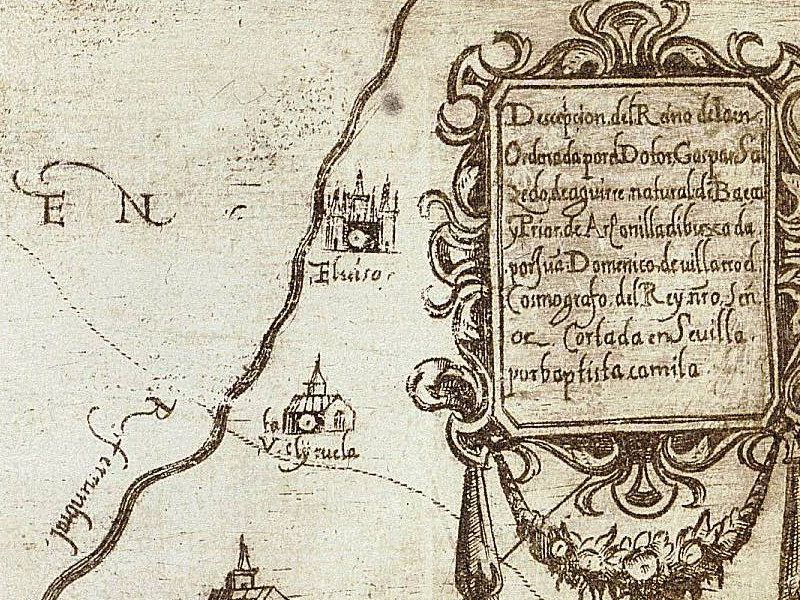 Descripcion del Reino de Iaen.
Ordenada por el Dotor Gaspar Sal
zedo, de aguirre natural de Baeça
y Prior de Arjonilla dibuxada
por Iuã Domenico de villarroel
Cosmografo, del Rey nr̃o. señ
or. Cortada en Sevilla.
por baptista camila.
E N
Elviso.
la
V. Clyruela